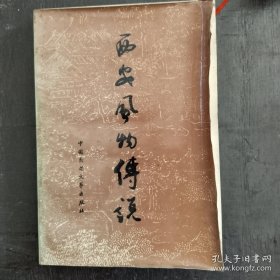 西安风物傳說
中国民间文艺出版社
孔夫子旧书网